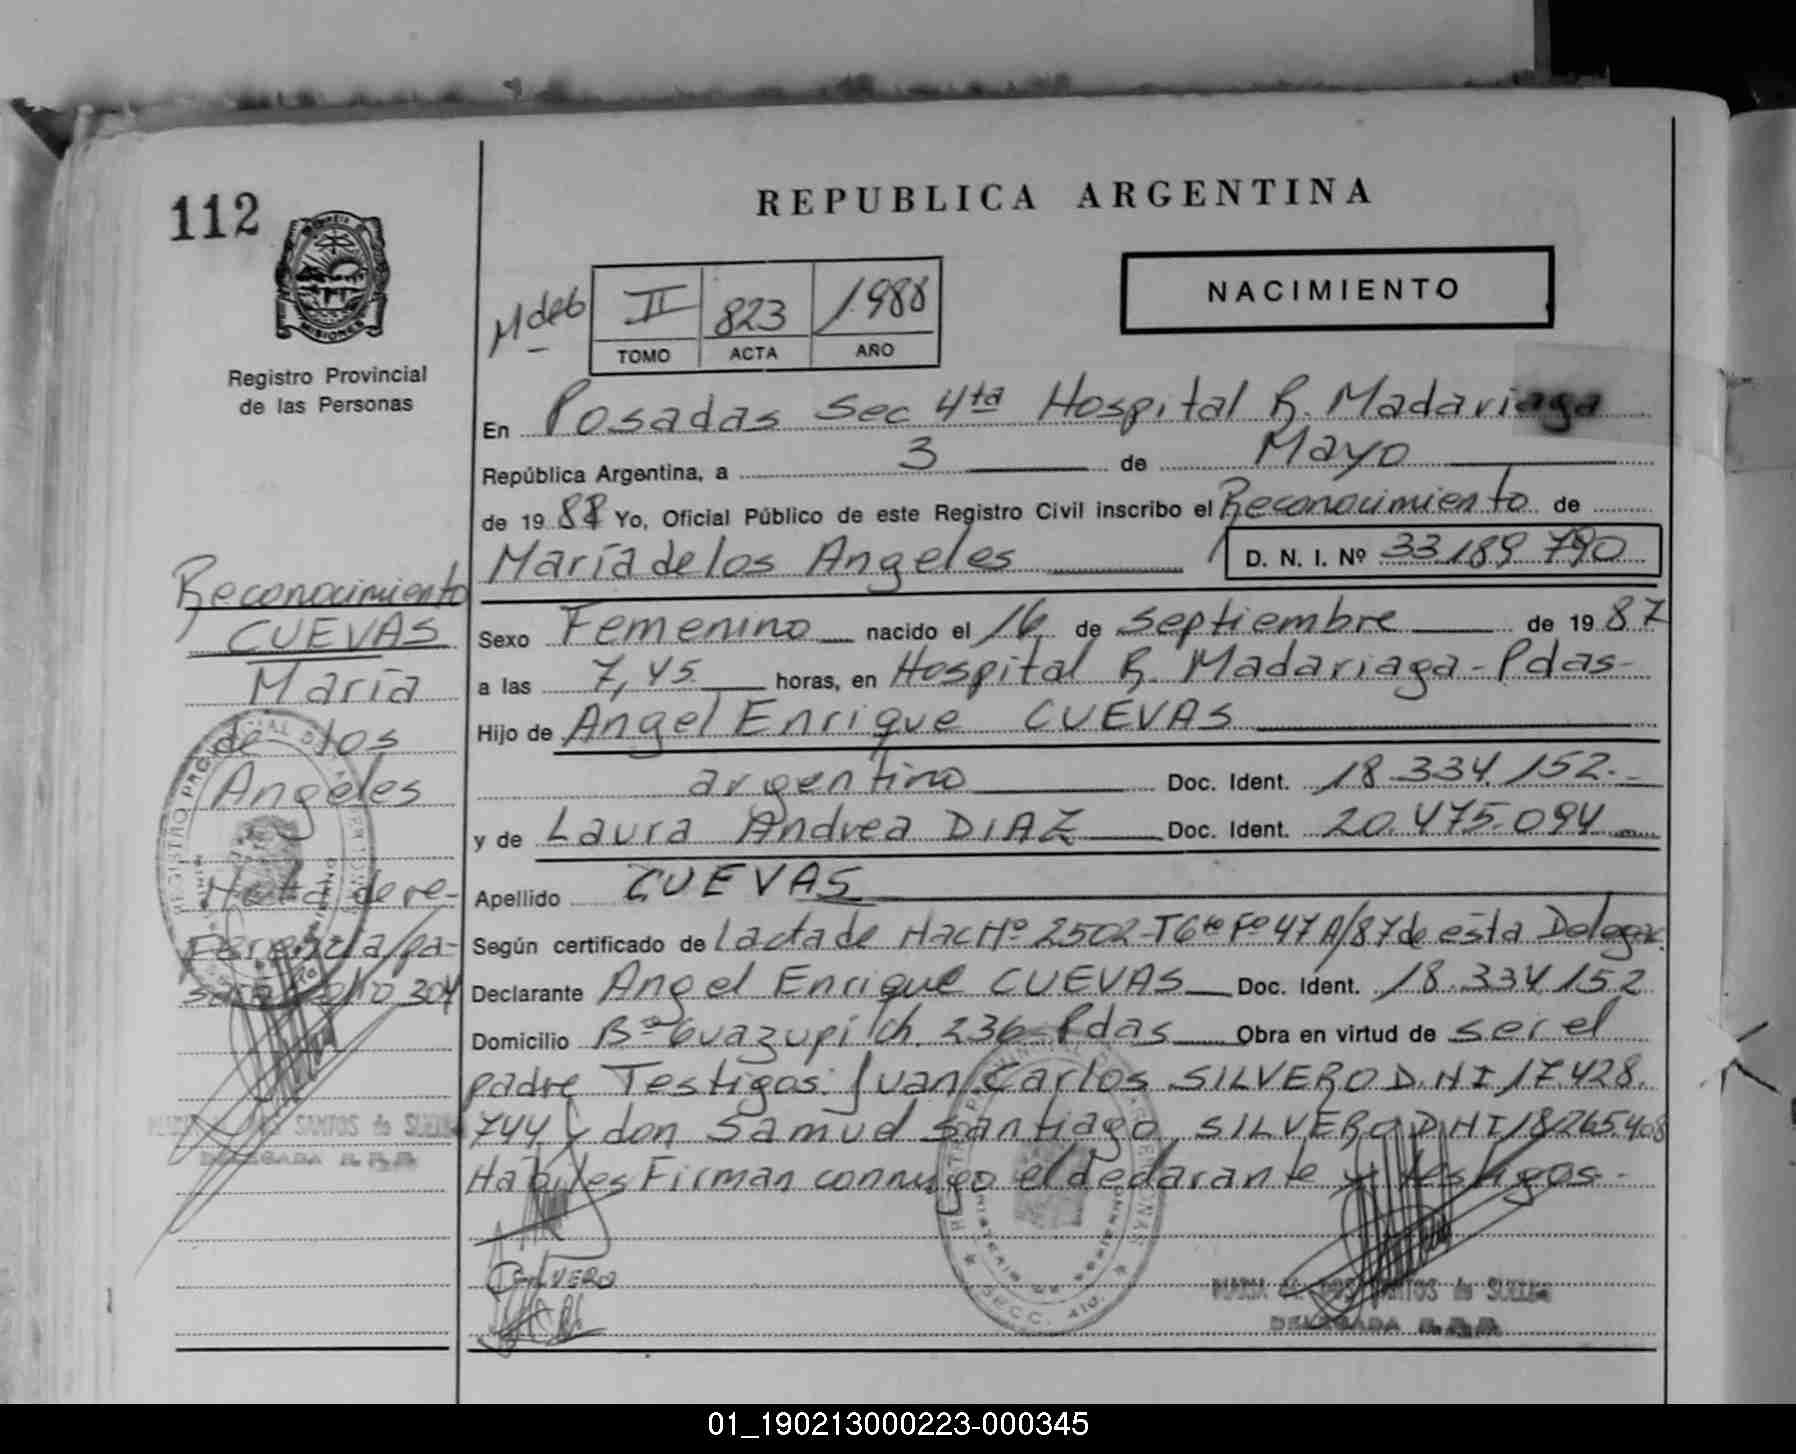 112
REPUBLICA ARGENTINA
NACIMIENTO
MISIONES
Registro Provincial
de las Personas
Mdeb
II 823 1.988
TOMO ACTA AÑO
En Posadas Sec 4ta Hospital R. Madariaga
República Argentina, a 3 de Mayo
de 19 88 Yo, Oficial Público de este Registro Civil inscribo el Reconocimiento de
María de los Angeles D. N. I. Nº 33.189.790
Sexo Femenino nacido el 16 de septiembre de 19 87
a las 7,45 horas, en Hospital R. Madariaga - Pdas-
Hijo de Angel Enrique CUEVAS
argentino Doc. Ident. 18.334.152.
y de Laura Andrea DIAZ Doc. Ident. 20.475.094
Apellido CUEVAS
Según certificado de L'acta de Nac Nº 2502-T6to Fº 47 A/87 de esta Delegac.
Declarante Angel Enrique CUEVAS Doc. Ident. 18.334.152
Domicilio Bº Guazupi Ch. 236- Pdas Obra en virtud de ser el
padre Testigos: Juan Carlos SILVERO D.N.I 17.428.
744 y don Samud Santiago SILVERO D.N.I 18.265.408
Habiles Firman conmigo el declarante y testigos.-
Reconocimiento
CUEVAS
María
de los
Angeles
Nota de re-
ferencia pa-
sar a folio 304
SANTOS de
DELEGADA
REGISTRO PROVINCIAL DE LAS PERSONAS
SECC. 4ta.
MARIA DOS SANTOS de
DELEGADA
01_190213000223-000345